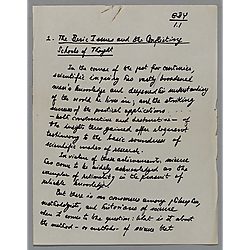 1. The Basic Issues and the Conflicting
Schools of Thought
In the course of the past four centuries,
scientific inquiry has vastly broadened
man's knowledge and deepened his understanding
of the world he lives in; and the striking
success of the practical applications —
both constructive and destructive — of
the insights thus gained offer eloquent
testimony to the basic soundness of
scientific modes of research.
In virtue of these achievements, science
has come to be widely acknowledged as the
exemplar of rationality in the pursuit of
reliable knowledge.
But there is no consensus among philosophers,
methodologists, and historians of science
when it comes to the question: what is it about
the method — or methods — of science that